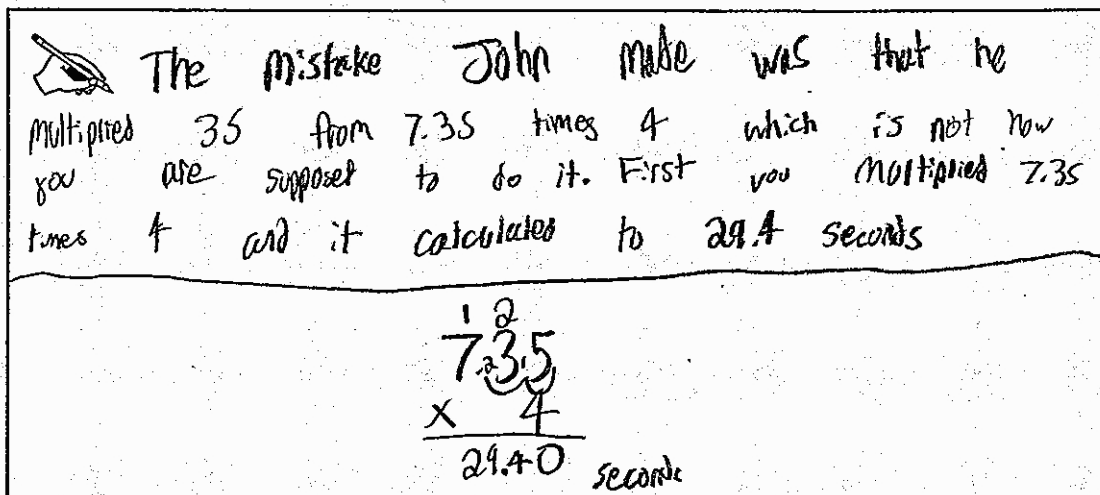 The mistake John made was that he
multiplied 35 from 7.35 times 4 which is not how
you are supposet to do it. First you multiplied 7.35
times 4 and it calculated to 29.4 seconds
1 2
7.35
x 4
29.40 seconds